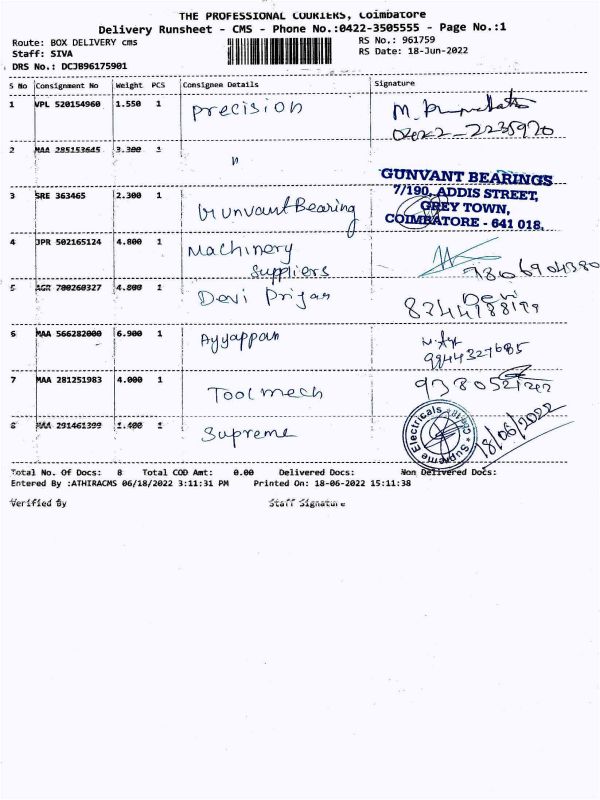 THE PROFESSIONAL COURIERS, Coimbatore
Delivery Runsheet - CMS - Phone No.:0422-3505555 - Page No.:1
Route: BOX DELIVERY cms
RS No.: 961759
Staff: SIVA
RS Date: 18-Jun-2022
DRS No.: DCJB96175901
S No Consignment No Weight PCS Consignee Details Signature
1 VPL 520154960 1.550 1 Precision
0422-2235970
2 MAA 285153645 3.300 1 "
GUNVANT BEARINGS
7/190, ADDIS STREET,
GREY TOWN,
COIMBATORE - 641 018.
3 SRE 363465 2.300 1 Gunvant Bearing
4 JPR 502165124 4.800 1 Machinery
Suppliers
5 AGR 700260327 4.800 1 Devi
Devi
6 MAA 566282000 6.900 1 Ayyappan
9944327685
7 MAA 281251983 4.000 1 Toolmech
8 MAA 291461399 1.400 1 Supreme
Supreme Electricals
18/06/2022
Total No. Of Docs: 8 Total COD Amt: 0.00 Delivered Docs: Non Delivered Docs:
Entered By :ATHIRACMS 06/18/2022 3:11:31 PM Printed On: 18-06-2022 15:11:38
Verified By Staff Signature